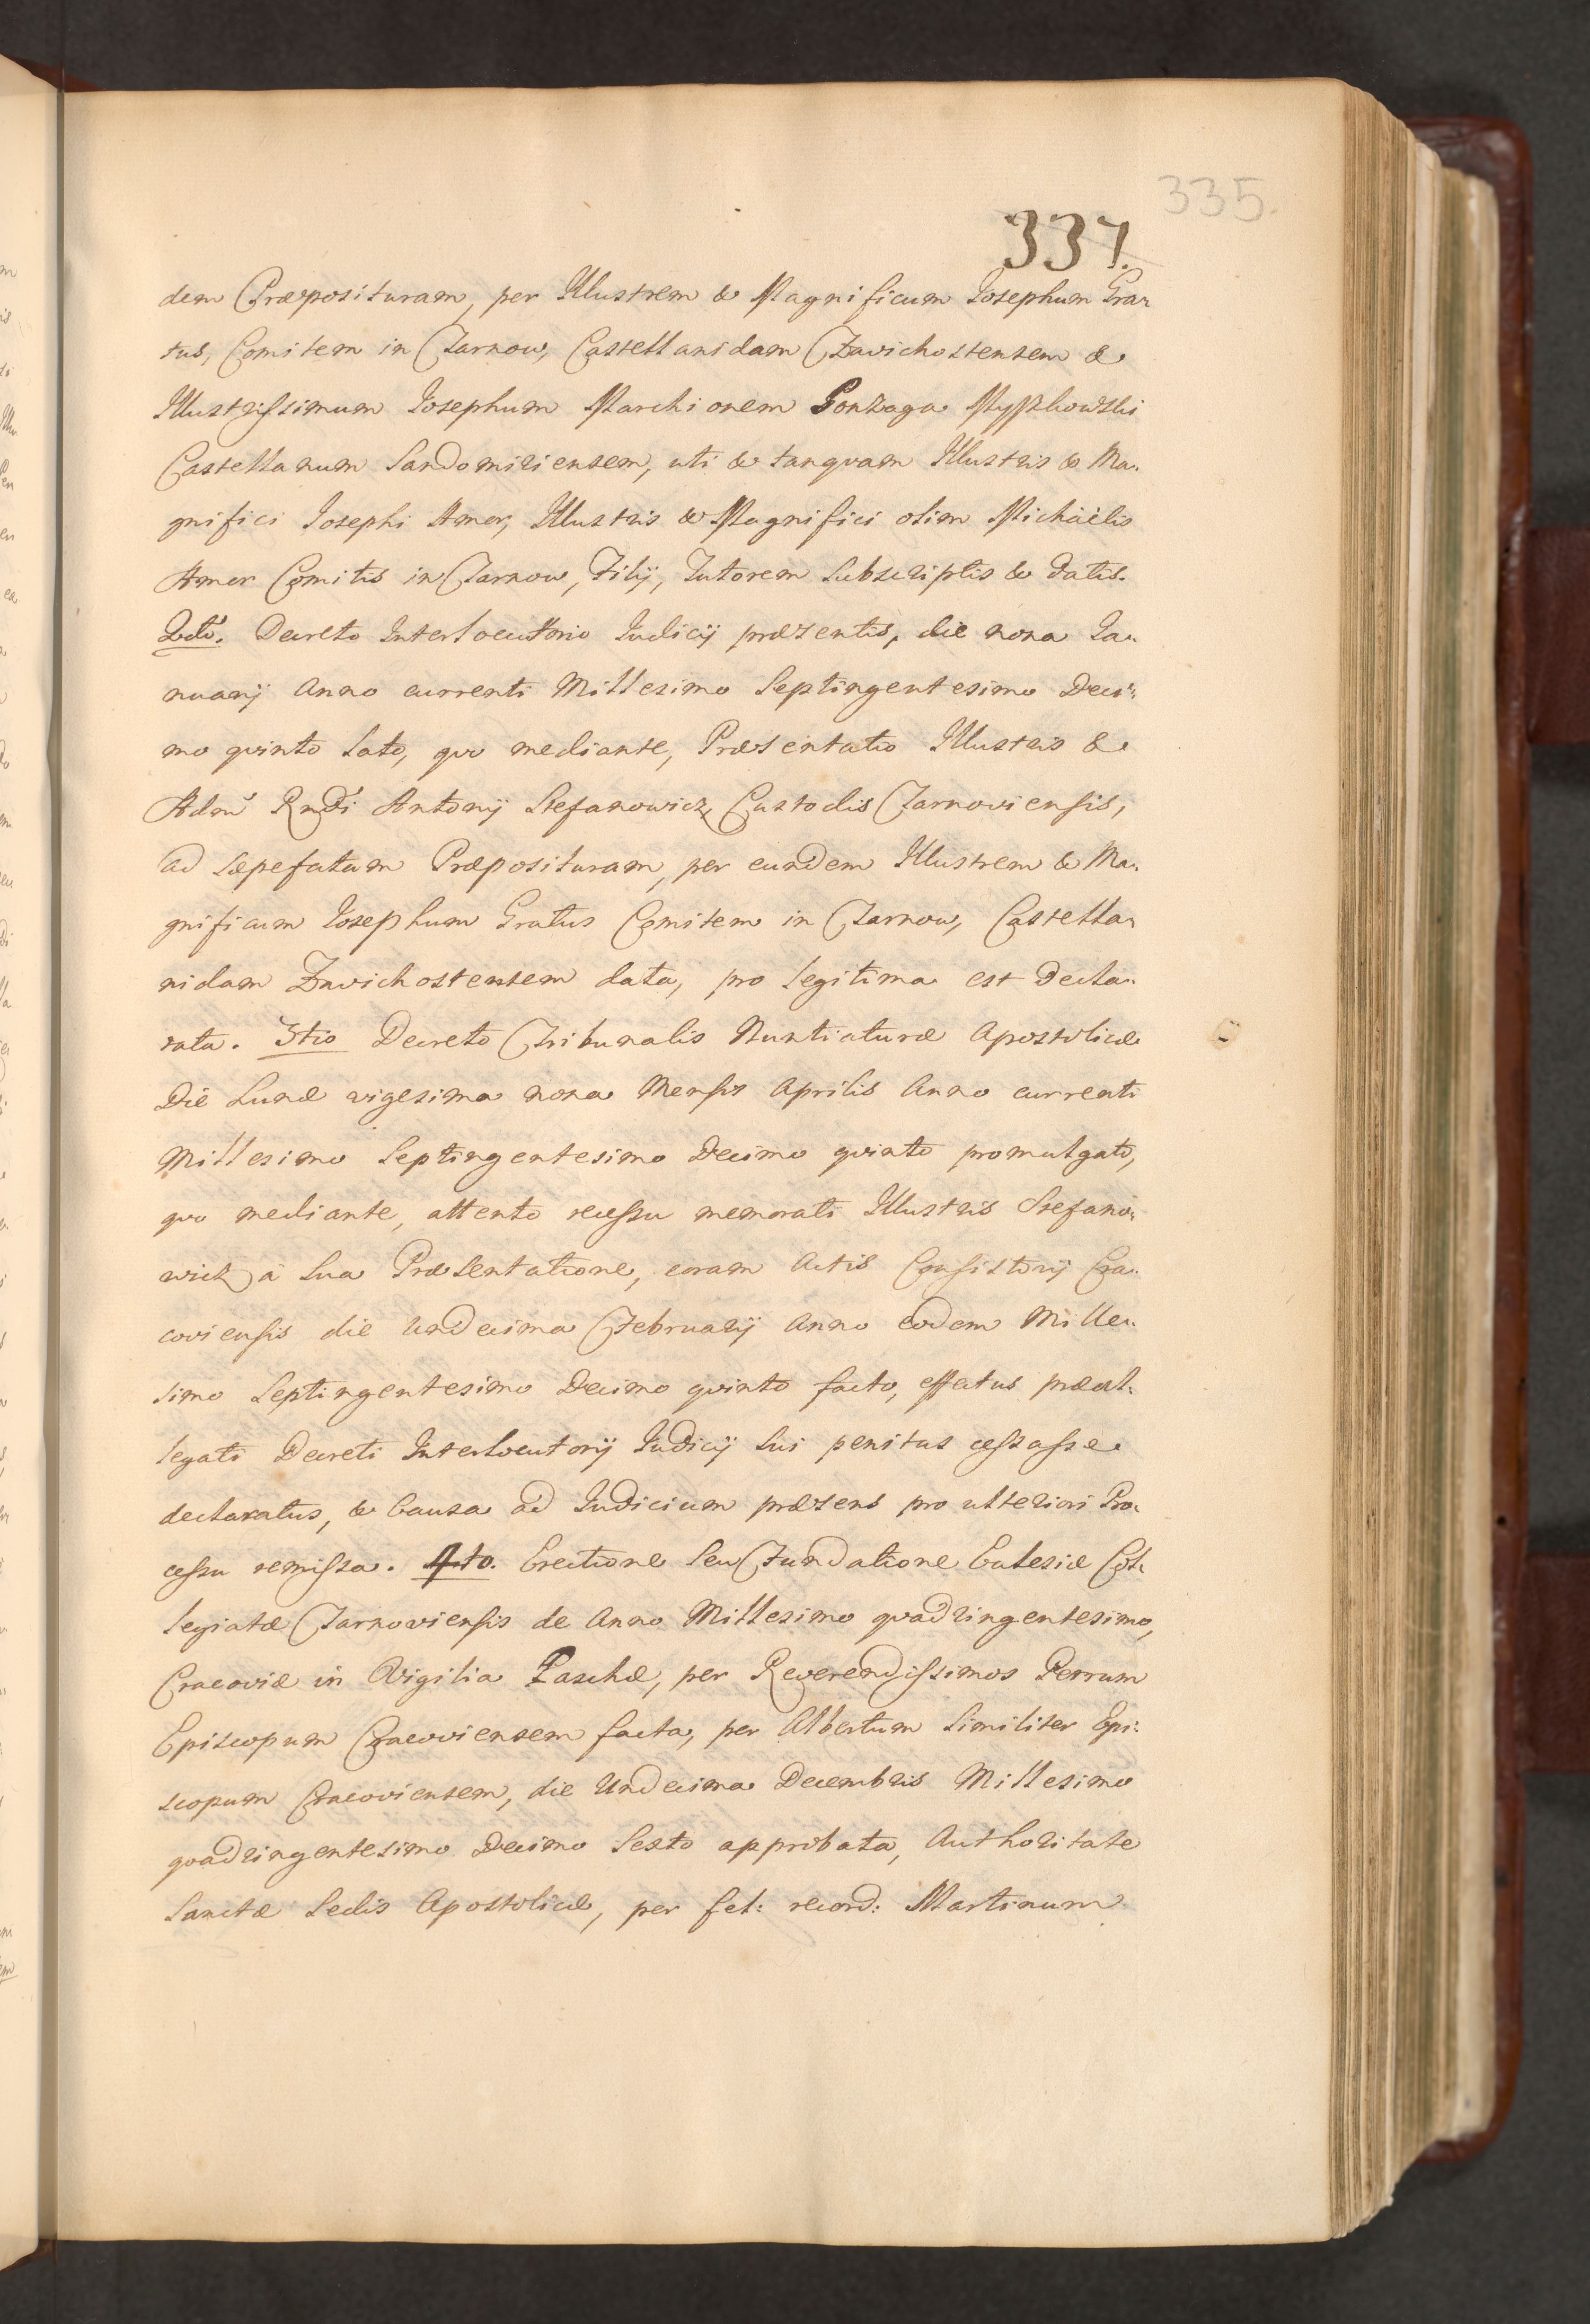 335.
337.
dem Præposituram, per Illustrem & Magnificum Iosephum Gra-
tus, Comitem in Tarnow, Castellanidam Zavichostensem &
Illustrissimum Iosephum Marchionem Gonzaga Myszkowski
Castellanum Sandomiriensem, uti & tanquam Illustris & Ma-
gnifici Iosephi Amor, Illustris & Magnifici olim Michäelis
Amor Comitis in Tarnow, Filij, Tutorem subscriptis & datis.
2do. Decreto Interlocutorio Iudicij præsentis, die nona Ia-
nuarij Anno currenti Millesimo Septingentesimo Deci-
mo qvinto lato, qvo mediante, Præsentatio Illustris &
Adm Rndi Antonij Stefanowicz Custodis Tarnoviensis,
ad sæpefatam Præposituram, per eundem Illustrem & Ma-
gnificum Iosephum Gratus Comitem in Tarnow, Castella-
nidam Zavichostensem data, pro legitima est decla-
rata. 3tio Decreto Tribunalis Nuntiaturæ Apostolicæ
Die Lunæ vigesima nona Mensis Aprilis Anno currenti
Millesimo Septingentesimo Decimo qvinto promulgato,
qvo mediante, attento recessu memorati Illustris Stefano-
wicz à sua Præsentatione, coram Actis Consistorij Cra-
coviensis die undecima Februarij Anno eodem Mille-
simo Septingentesimo Decimo qvinto facto, effectus præal-
legati Decreti Interlocutorij Iudicij sui penitus cessasse
declaratus, & Causa ad Iudicium præsens pro ulteriori Pro-
cessu remissa. 4to. Erectione seu Fundatione Eclesiæ Col-
legiatæ Tarnoviensis de Anno Millesimo qvadringentesimo,
Cracoviæ in Vigilia Paschæ, per Reverendissimos Petrum
Episcopum Cracoviensem facta, per Albertum similiter Epi-
scopum Cracoviensem, die Undecima Decembris Millesimo
qvadringentesimo Decimo Sexto approbata, Authoritate
Sanctæ Sedis Apostolicæ, per fel: record: Martinum